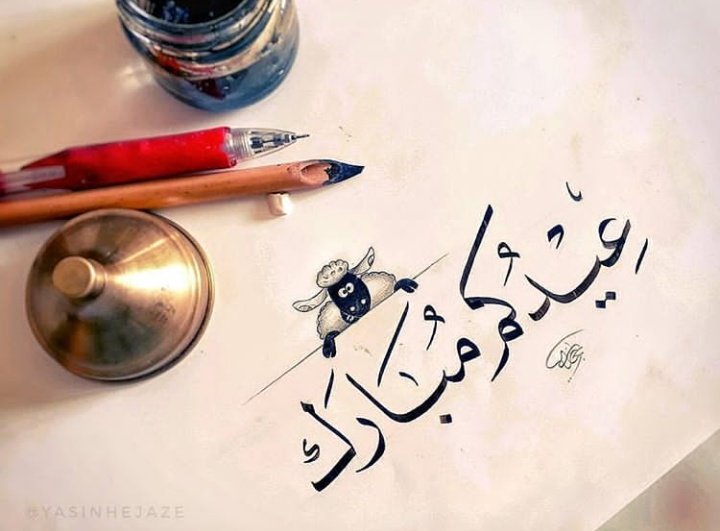 عِيدُكُم مُبَارَك
@YASINHEJAZE